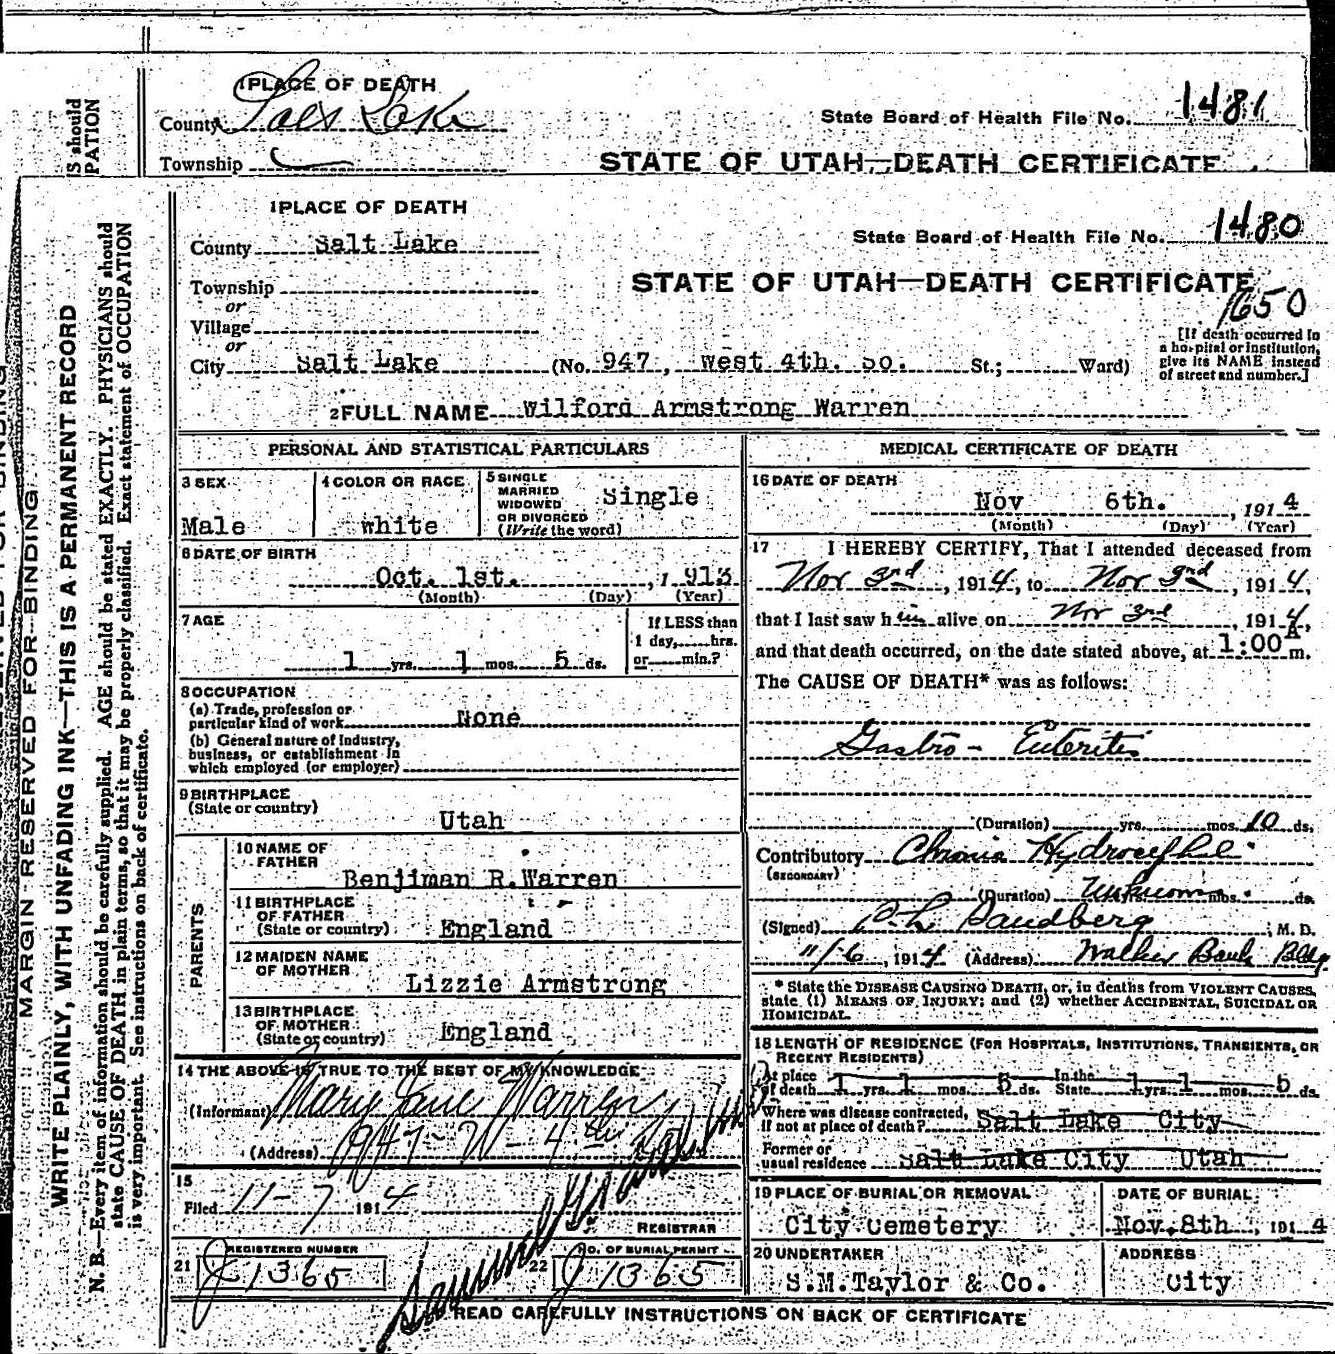 1 PLACE OF DEATH
County Salt Lake
State Board of Health File No. 1481
Township
STATE OF UTAH—DEATH CERTIFICATE
IS should
PATION
MARGIN RESERVED FOR BINDING
WRITE PLAINLY, WITH UNFADING INK—THIS IS A PERMANENT RECORD
N. B.—Every item of information should be carefully supplied. AGE should be stated EXACTLY. PHYSICIANS should
state CAUSE OF DEATH in plain terms, so that it may be properly classified. Exact statement of OCCUPATION
is very important. See instructions on back of certificate.
1 PLACE OF DEATH
County Salt Lake
State Board of Health File No. 1480
Township
STATE OF UTAH—DEATH CERTIFICATE
or
1650
Village
or
City Salt Lake (No. 947, West 4th. So. St.; Ward)
[If death occurred in
a hospital or institution,
give its NAME instead
of street and number.]
2 FULL NAME Wilford Armstrong Warren
PERSONAL AND STATISTICAL PARTICULARS
3 SEX
Male
4 COLOR OR RACE
White
5 SINGLE
MARRIED
WIDOWED
OR DIVORCED
(Write the word)
Single
6 DATE OF BIRTH
Oct. 1st. , 1 913
(Month) (Day) (Year)
7 AGE
1 yrs. 1 mos. 5 ds.
If LESS than
1 day, hrs.
or min.?
8 OCCUPATION
(a) Trade, profession or
particular kind of work None
(b) General nature of industry,
business, or establishment in
which employed (or employer)
9 BIRTHPLACE
(State or country)
Utah
PARENTS
10 NAME OF
FATHER
Benjiman R.Warren
11 BIRTHPLACE
OF FATHER
(State or country) England
12 MAIDEN NAME
OF MOTHER
Lizzie Armstrong
13 BIRTHPLACE
OF MOTHER
(State or country) England
14 THE ABOVE IS TRUE TO THE BEST OF MY KNOWLEDGE
(Informant) Mary Jane Warren
(Address) 947-W-4th
15
Filed 11-7 1914
REGISTRAR
REGISTERED NUMBER
21 J 1365
NO. OF BURIAL PERMIT
22 J 1365
MEDICAL CERTIFICATE OF DEATH
16 DATE OF DEATH
Nov 6th. , 191 4
(Month) (Day) (Year)
17 I HEREBY CERTIFY, That I attended deceased from
Nov 3rd, 1914, to Nov 3rd, 1914,
that I last saw him alive on Nov 3rd, 1914,
and that death occurred, on the date stated above, at 1:00 A m.
The CAUSE OF DEATH* was as follows:
Gastro-Enteritis
(Duration) yrs. mos. 10 ds.
Contributory Chronic
(SECONDARY)
(Duration) Unknown mos. ds.
(Signed) Sandberg, M. D.
11/6, 1914 (Address) Walker Bank Bldg.
* State the DISEASE CAUSING DEATH, or, in deaths from VIOLENT CAUSES,
state (1) MEANS OF INJURY; and (2) whether ACCIDENTAL, SUICIDAL OR
HOMICIDAL.
18 LENGTH OF RESIDENCE (FOR HOSPITALS, INSTITUTIONS, TRANSIENTS, OR
RECENT RESIDENTS)
At place
of death 1 yrs. 1 mos. 5 ds. In the
State 1 yrs. 1 mos. 5 ds.
Where was disease contracted,
if not at place of death? Salt Lake City
Former or
usual residence Salt Lake City Utah
19 PLACE OF BURIAL OR REMOVAL
City Cemetery
DATE OF BURIAL
Nov.8th , 191 4
20 UNDERTAKER
S.M.Taylor & Co.
ADDRESS
City
READ CAREFULLY INSTRUCTIONS ON BACK OF CERTIFICATE